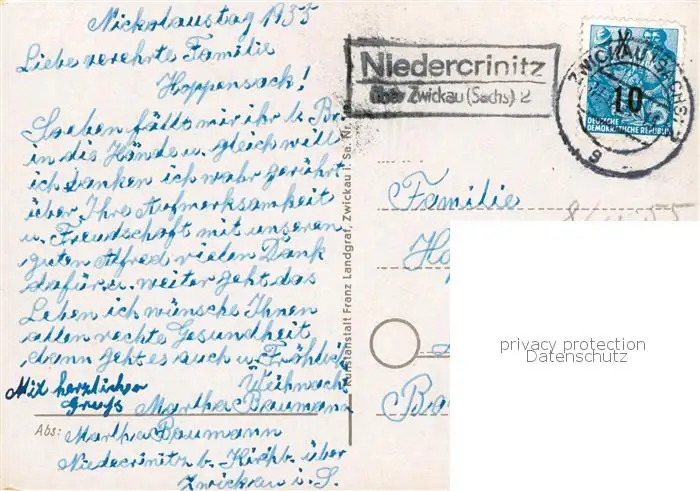 Nickolaustag 1955
Liebe verehrte Familie
Hoppensack!
Soeben fällt mir ihr b. Br.
in die Hände u. gleich will
ich danken ich wahr gerührt
über Ihre Aufmerksamkeit
u. Freudschaft mit unseren
guten Alfred vielen Dank
dafür u. weiter geht das
Leben ich wünsche Ihnen
allen rechte Gesundheit
dann geht es auch u. Fröhlich
Weihnach
Mit herzlichen
Gruß Martha Baumann
Abs: Martha Baumann
Niedecrinitz b. Kirchb. über
Zwickau i. S.
Kunstanstalt Franz Landgraf, Zwickau i. Sa. Nr.
Niedercrinitz
über Zwickau (Sachs) 2
ZWICKAU (SACHS) 2
10
DEUTSCHE
DEMOKRATISCHE REPUBLIK
Familie
privacy protection
Datenschutz